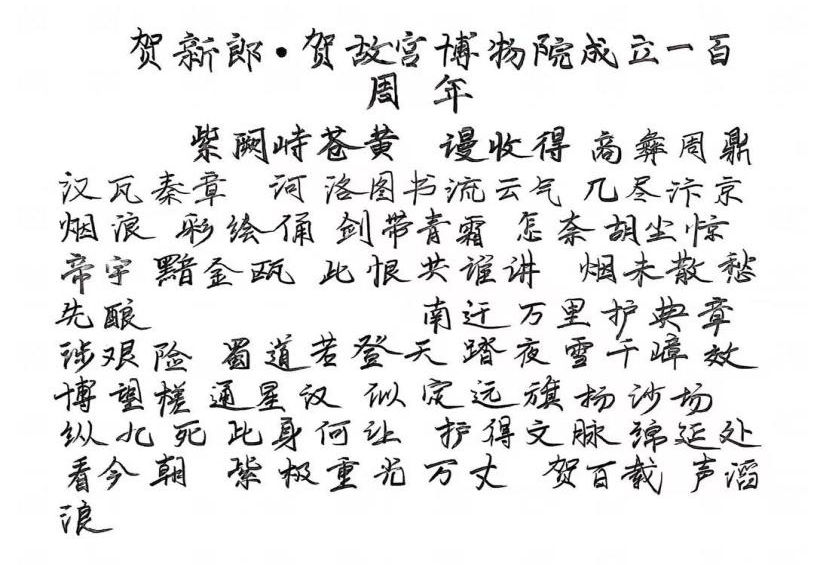 贺新郎·贺故宫博物院成立一百
周年
紫阙峙苍黄 谩收得 高彝周鼎
汉瓦秦章 河洛图书流云气 几尽汴京
烟浪 彩绘俑 剑带青霜 怎奈胡尘惊
帝宇 黯金瓯 此恨共谁讲 烟未散愁
先酿 南迁万里护典章
涉艰险 蜀道若登天 踏夜雪千嶂 效
博望槎通星汉 似定远旗扬沙场
纵九死此身何让 护得文脉绵延处
看今朝 紫极重光万丈 贺百载 声滔
浪